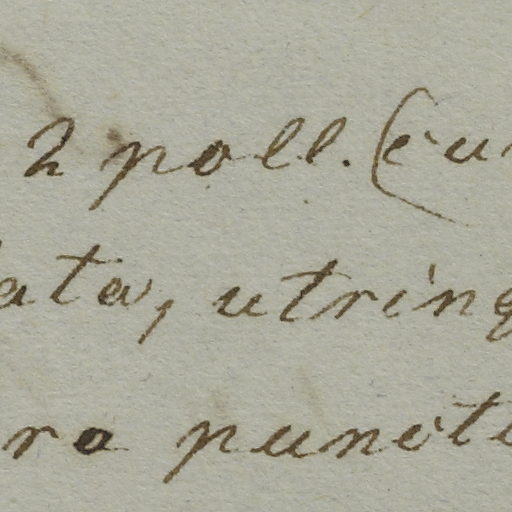 2 poll. (cu
lata, utrinq
ro punct